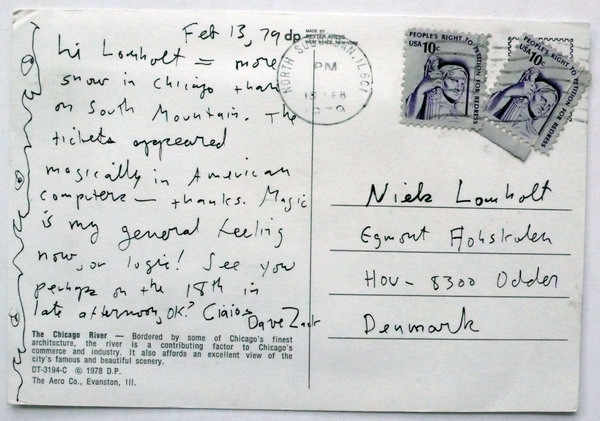 Feb 13, 79
dp MADE BY
DEXTER PRESS
WEST NYACK, NEW YORK
Hi Lomholt = more
snow in Chicago than
on South Mountain. The
tickets appeared
magically in American
computers — thanks. Magic
is my general feeling
now, or logic! See you
perhaps on the 18th in
late afternoon, OK? Ciaios
Dave Zack
The Chicago River — Bordered by some of Chicago's finest
architecture, the river is a contributing factor to Chicago's
commerce and industry. It also affords an excellent view of the
city's famous and beautiful scenery.
DT-3194-C © 1978 D.P.
The Aero Co., Evanston, Ill.
NORTH SUBURBAN, IL 601
PM
13 FEB
1979
PEOPLE'S RIGHT TO PETITION FOR REDRESS
USA 10c
PEOPLE'S RIGHT TO PETITION FOR REDRESS
USA 10c
Niels Lomholt
Egmont
Hou - 8300 Odder
Denmark